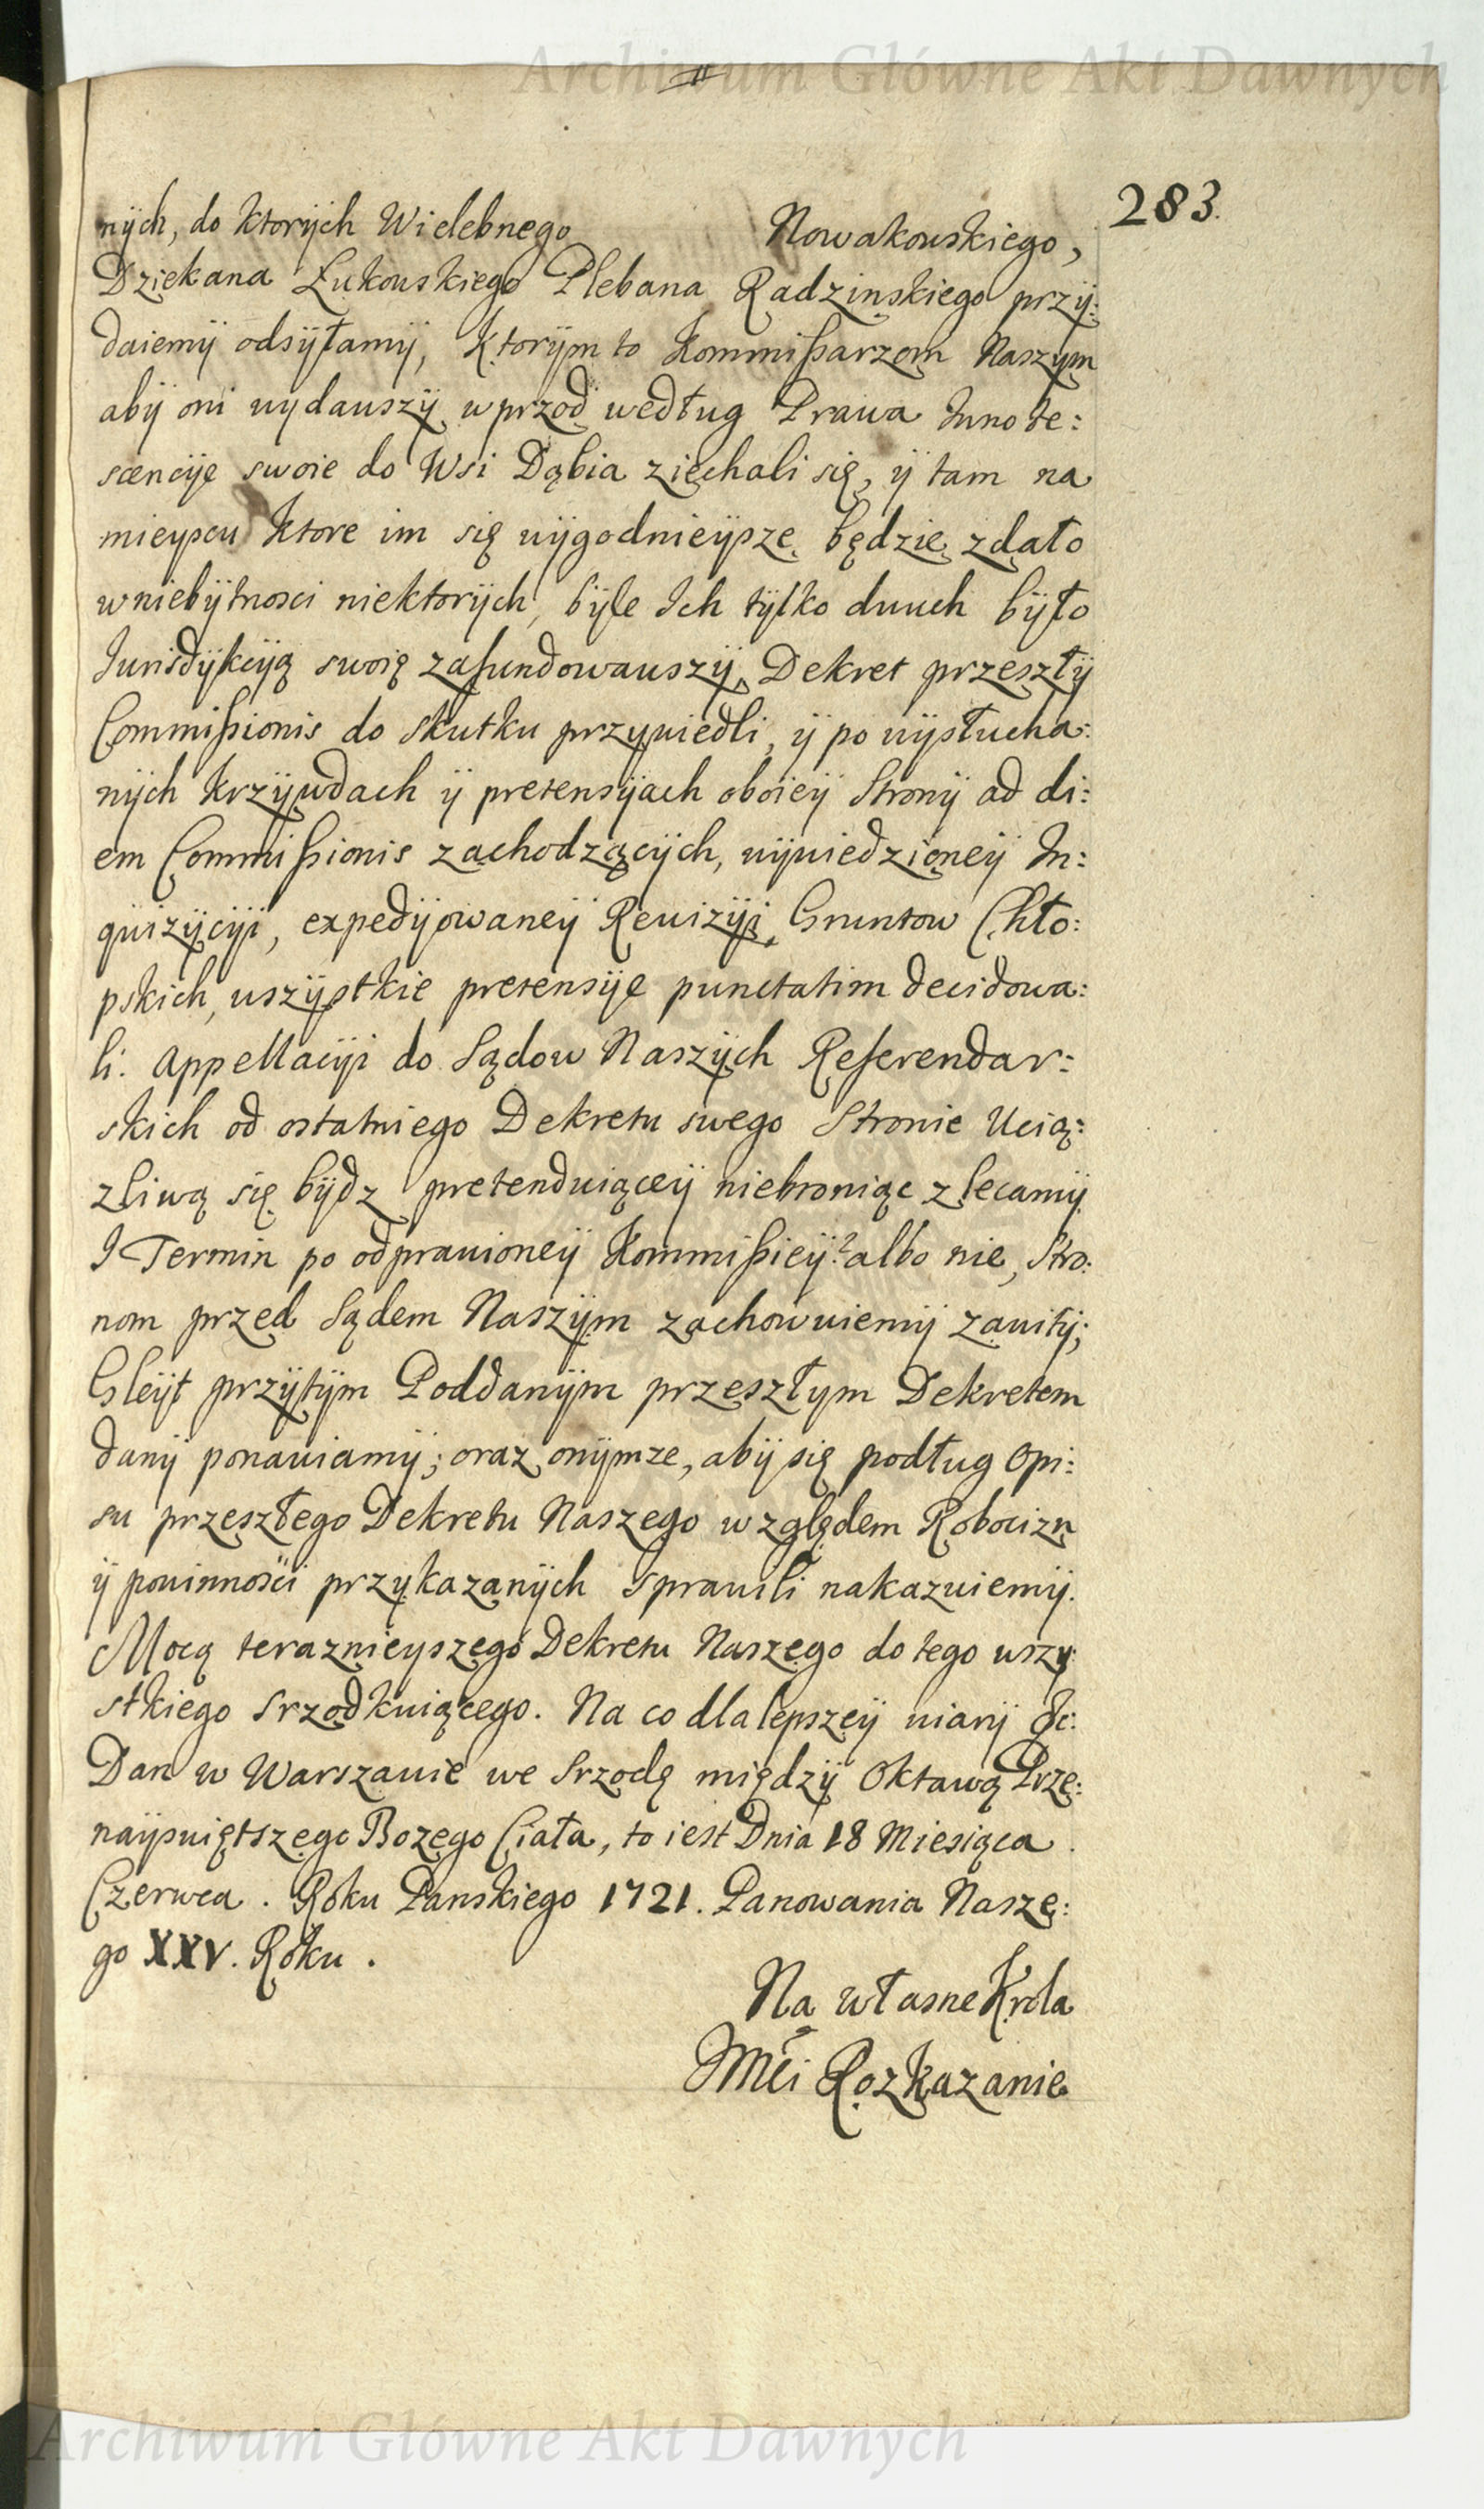 Archiwum Główne Akt Dawnych
283.
nych, do ktorych Wielebnego Nowakowskiego,
Dziekana Łukowskiego Plebana Radzinskiego przy:
daiemy odsyłamy, Ktorym to Kommißarzom Naszym
aby oni wydawszy wprzod według Prawa Innote:
scencye swoie do Wsi Dąbia ziechali się, y tam na
mieyscu ktore im się wygodnieysze będzie zdało
wniebytnosci niektorych, byle Ich tylko dwuch było
Iurisdykcyą swoię zafundowawszy, Dekret przeszły
Commißionis do skutku przywiedli, y po wysłucha:
nych krzywdach y pretensyach oboiey Strony ad di:
em Commißionis zachodzących, wywiedzioney In:
quizycyi, expedyowaney Rewizyi Gruntow Chło:
pskich, wszystkie pretensye punctatim decidowa:
li. Appellacyi do Sądow Naszych Referendar:
skich od ostatniego Dekretu swego Stronie Ucią:
zliwą się bydz pretenduiącey niebroniąc zlecamy
I Termin po odprawioney Kommißiey? albo nie, Stro:
nom przed Sądem Naszym zachowuiemy zawity;
Gleyt przytym Poddanym przeszłym Dekretem
dany ponawiamy; oraz onymze, aby się podług Opi:
su przeszłego Dekretu Naszego względem Robocizn
y powinnosci przykazanych sprawili nakazuiemy.
Mocą teraznieyszego Dekretu Naszego do tego wszy:
stkiego Srzodkuiącego. Na co dla lepszey wiary &c:
Dan w Warszawie we Srzodę między Oktawą Prze:
nayswiętszego Bozego Ciała, to iest Dnia 18 Miesiąca
Czerwca. Roku Panskiego 1721. Panowania Nasze:
go XXV. Roku.
Na własne Krola
JMci Rozkazanie
Archiwum Główne Akt Dawnych